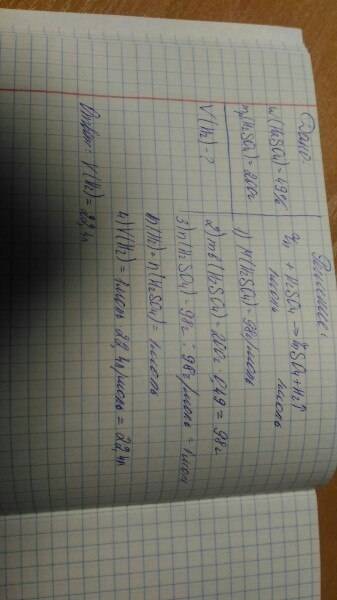 Дано
w(H₂SO₄) = 49%
mр(H₂SO₄) = 200г
V(H₂) - ?
Решение:
Zn + H₂SO₄ → ZnSO₄ + H₂↑
1моль 1моль
1) M(H₂SO₄) = 98г/моль
2) m в (H₂SO₄) = 200г · 0,49 = 98г
3) n(H₂SO₄) = 98г : 98г/моль = 1мол
n(H₂) = n(H₂SO₄) = 1моль
4) V(H₂) = 1моль · 22,4л/моль = 22,4л
Ответ: V(H₂) = 22,4л